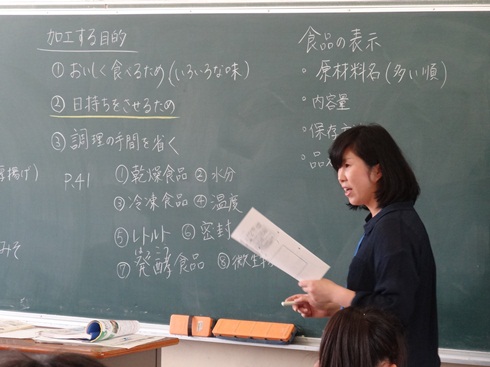 加工する目的
①おいしく食べるため(いろいろな味)
②日持ちをさせるための
③調理の手間を省く
揚げ)
P.41
①乾燥食品 ②水分
③冷凍食品 ④温度
⑤レトルト ⑥密封
みそ
はっこう
⑦発酵食品 ⑧微生
食品の表示
・原材料名(多い順)
・内容量
・保存
・品